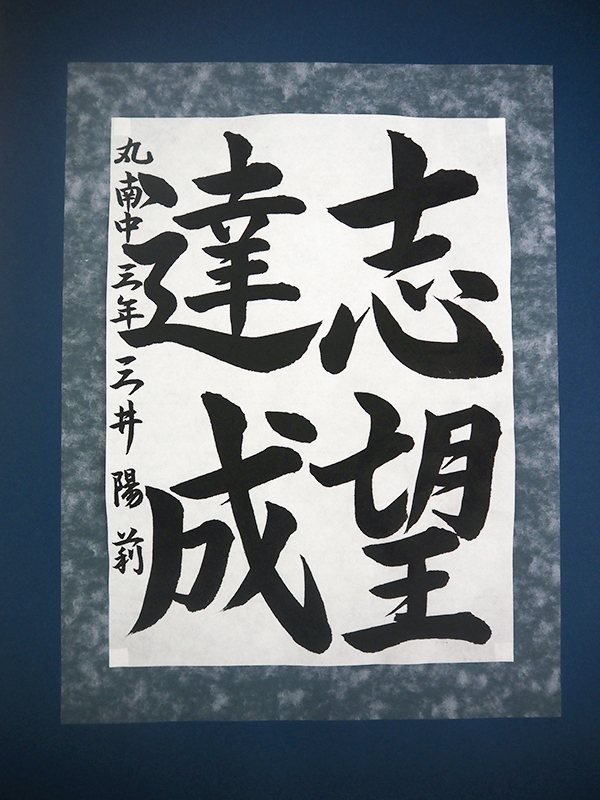 志望
達成
丸南中三年三井陽莉